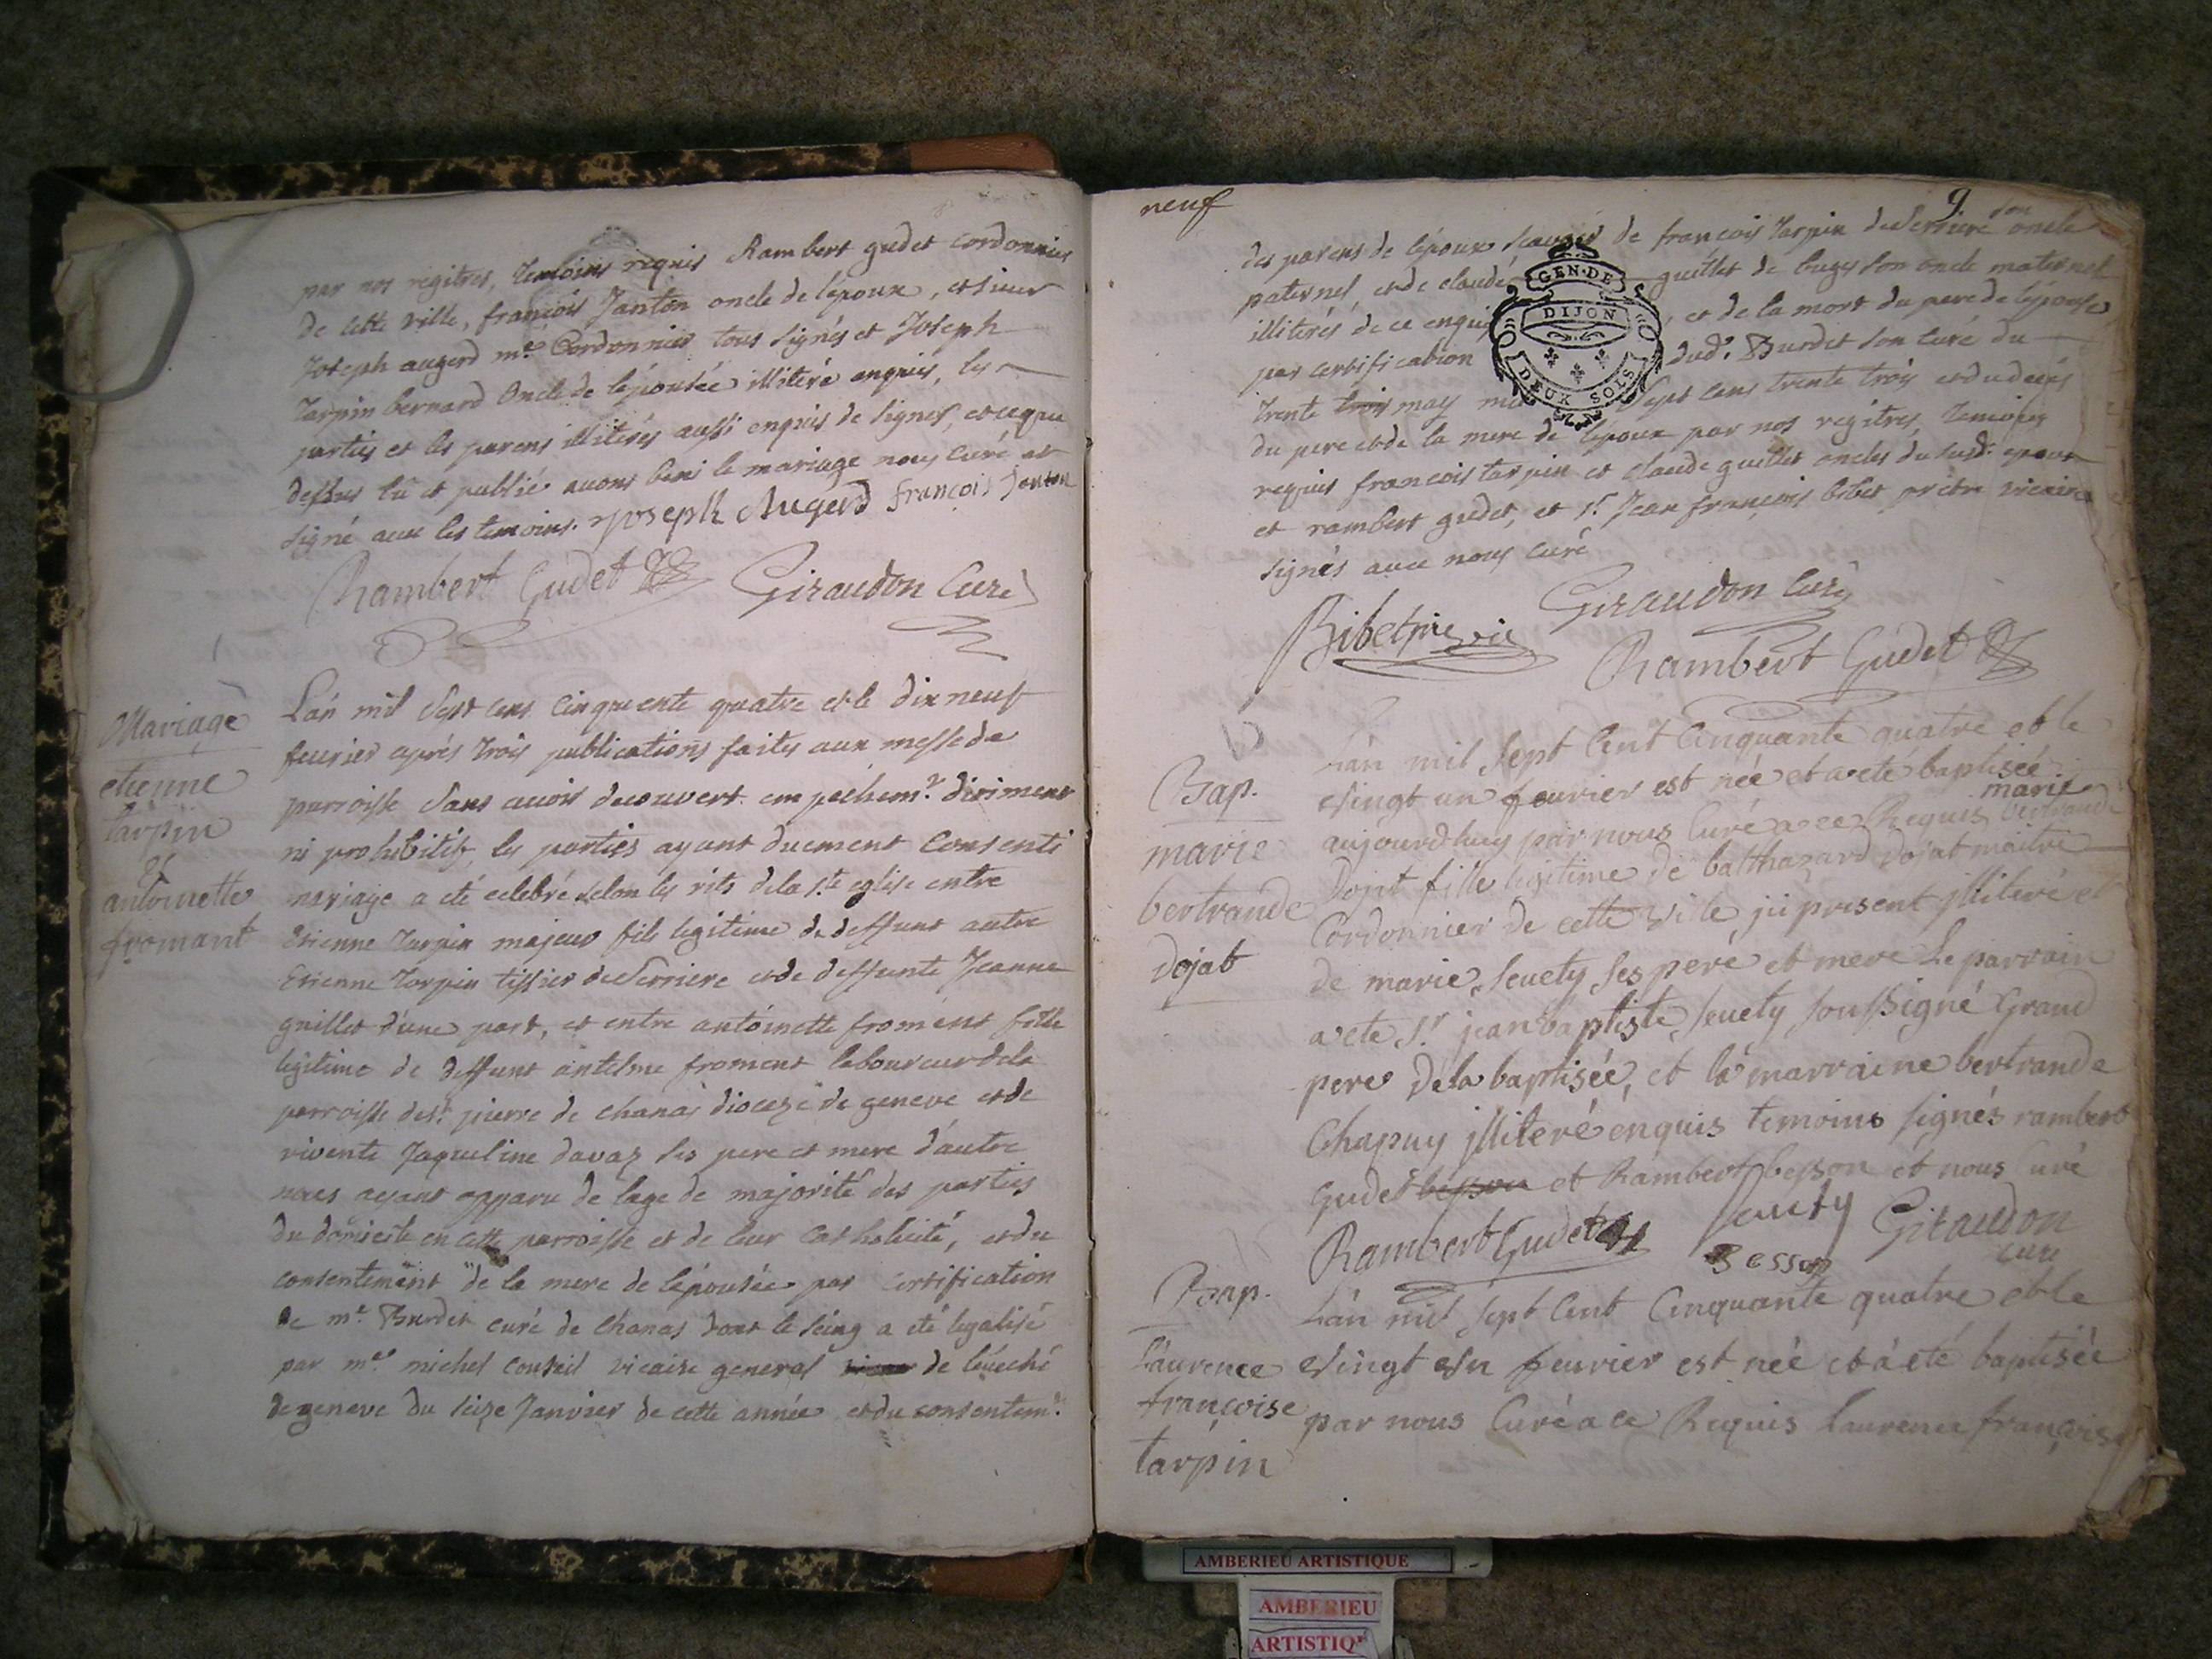 par nos regitres, temoins requis Rambert gudet cordonnier
de cette ville, françois Janton oncle de lepoux, et sieur
Joseph augerd me. Cordonnier tous signés et Joseph
tarpin bernard Oncle de lepousée illiteré enquis, les
parties et les parens illiterés aussi enquis de signer, et ce que
dessus lû et publié avons beni le mariage nous curé et
signé avec les temoins. Joseph Augerd françois Janton
Rambert Gudet Giraudon Curé
Mariage
etienne
tarpin
&
antoinette
fromant
L'an mil sept cens cinquente quatre et le dix neuf
feuvrier aprés trois publications faites aux messe de
parroisse sans avoir decouvert empechemt. diriment
ni prohibitif, les parties ayant duement consenti
mariage a eté celebré selon les rits de la ste. eglise entre
Etienne Tarpin majeur fils legitime de deffunt autre
Etienne Tarpin tissier de Serriere et de deffunte Jeanne
guillet d'une part, et entre antoinette froment fille
legitime de deffunt antelme froment laboureur de la
parroisse de st. pierre de chanas dioceze de geneve et de
vivente Jaqueline davaz ses pere et mere d'autre
nous ayant apparu de lage de majorité des parties
du domicile en cette parroisse et de leur Catholicité, et du
consentement de la mere de lepousée par certification
de mr. Burdet curé de Chanas dont le seing a eté legalisé
par mre. michel conseil vicaire general de leveché
de geneve du seize Janvier de cette année et du consentemt.
neuf 9
son
des parens de lepoux scavoir de françois Tarpin de Serriere oncle
paternel, et de claude guillet de buges son oncle maternel
illiterés de ce enquis, et de la mort du pere de lépouse
par certification dud. Burdet son curé du
trente trois may mil sept cens trente trois et du decés
du pere et de la mere de lepoux par nos regitres, temoins
requis francois tarpin et claude guillet oncles du susd. epoux
et rambert gudet, et sr. Jean françois bibet prêtre vicaire
signés avec nous curé
Bibet ptre vic Giraudon Curé
Rambert Gudet
Bap.
marie
bertrande
Dojat
L'an mil sept Cent Cinquante quatre et le
vingt un feuvrier est née et a eté baptisée
marie
aujourdhuy par nous Curé a ce Requis bertrande
Dojat fille legitime de balthazard Dojat maitre
Cordonnier de cette ville ici present jlliteré et
de marie seuety ses pere et mere le parrain
a ete sr. jean baptiste seuety soussigné Grand
pere de la baptisée, et la marraine bertrande
Chapuy jlliteré enquis temoins signés rambert
Gudet besson et Rambert besson et nous Curé
Rambert Gudet seuety Giraudon
Besson curé
Bap.
Laurence
françoise
tarpin
L'an mil sept Cent Cinquante quatre et le
vingt un feuvrier est née et a eté baptisée
par nous Curé a ce Requis laurence françoise
GEN·DE
DIJON
DEUX SOLS
AMBERIEU ARTISTIQUE
AMBERIEU
ARTISTIQ